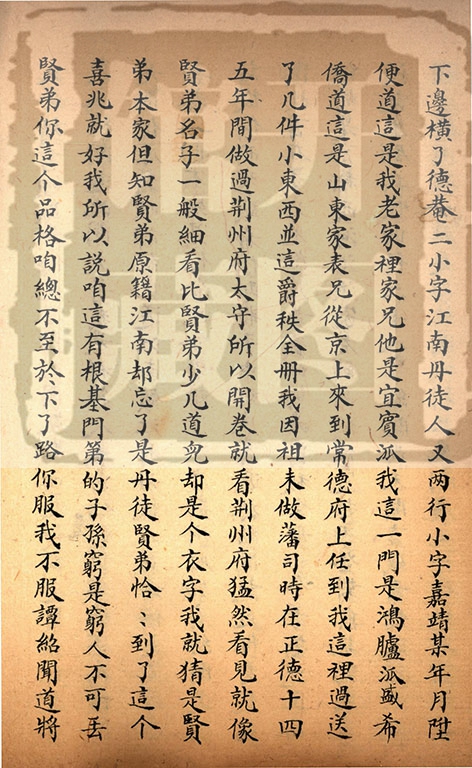 下邊橫了德菴二小字江南丹徒人又两行小字嘉靖某年月陞
便道這是我老家裡家兄他是宜賓派我這一門是鴻臚派盛希
僑道這是山東家表兄從京上來到常德府上任到我這裡過送
了几件小東西並這爵秩全册我因祖未做藩司時在正德十四
五年間做過荆州府太守所以開卷就看荆州府猛然看見就像
賢弟名子一般細看比賢弟少几道兒却是个衣字我就猜是賢
弟本家但知賢弟原籍江南却忘了是丹徒賢弟恰〻到了這个
喜兆就好我所以説咱這有根基門第的子孫窮是窮人不可丟
賢弟你這个品格咱總不至於下了路你服我不服譚紹聞道將